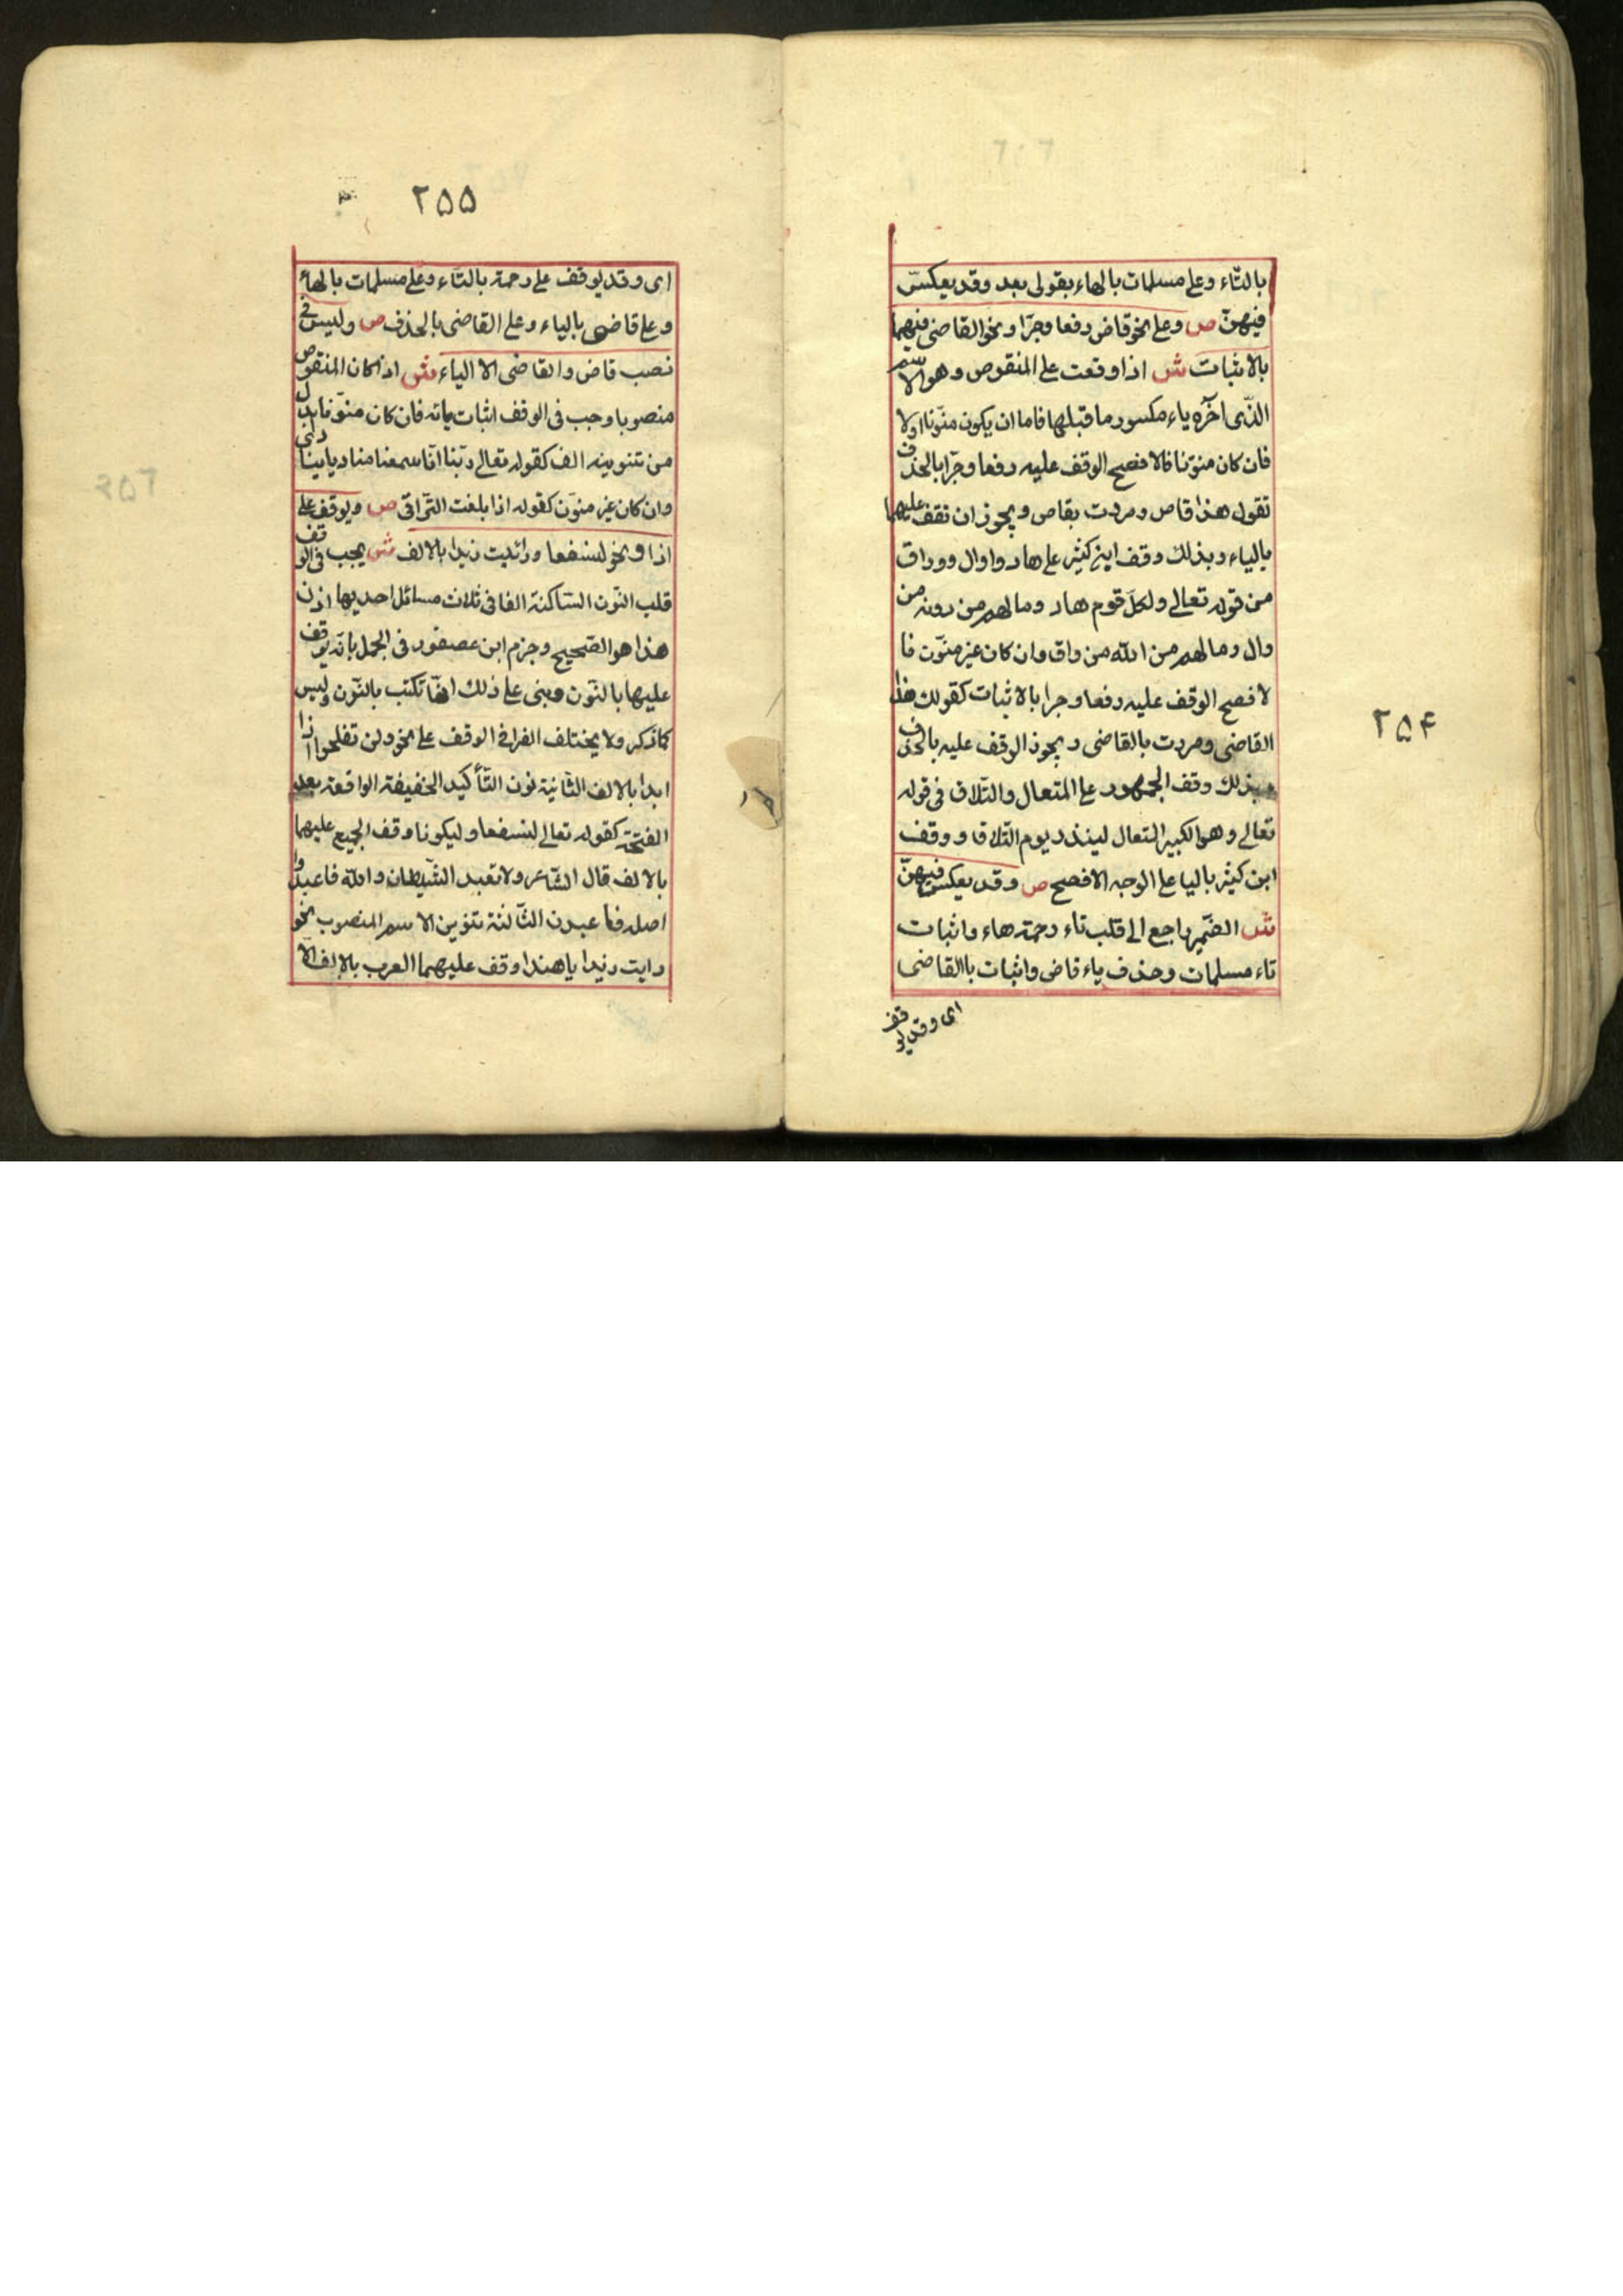 ۲۵۴
بالتّاء وعلى مسلمات بالهاء بقولى بعد وقد يعكس
فيهنّ ص وعلى نحو قاض رفعا وجرّا ونحو القاضى فيهما
بالاثبات ش اذا وقعت على المنقوص وهو الاسم
الذّى اخره ياء مكسور ما قبلها فاما ان يكون منوّنا اولا
فان كان منوّنا فالافصح الوقف عليه رفعا وجرّا بالحذف
تقول هذا قاص ومررت بقاص ويجوز ان تقف عليهما
بالياء وبذلك وقف ابن كثير على هاد ووال وواق
من قوله تعالى ولكلّ قوم هاد وما لهم من دونه من
وال وما لهم من الله من واق وان كان غير منوّن فا
لافصح الوقف عليه رفعا وجرا بالاثبات كقولك هذا
القاضى ومررت بالقاضى ويجوز الوقف عليه بالحذف
وبذلك وقف الجمهور على المتعال والتّلاق فى قوله
تعالى وهو الكبير المتعال لينذر يوم التّلاق ووقف
ابن كثير باليا على الوجه الافصح ص وقد يعكس فيهنّ
ش الضّمير راجع الى قلب تاء رحمة هاء واثبات
تاء مسلمات وحذف ياء قاض واثبات يا القاضى
اى وقد يوقف
۲۵۵
اى وقد يوقف على رحمة بالتّاء وعلى مسلمات بالهاء
وعلى قاضى بالياء وعلى القاضى بالحذف ص وليس فى
نصب قاض والقاضى الا الياء ش اذا كان المنقوص
منصوبا وجب فى الوقف اثبات يائه فان كان منوّنا بدل
من تنوينه الف كقوله تعالى ربّنا انّا سمعنا مناديا ينادى
وان كان غير منوّن كقوله اذا بلغت التّراقى ص ويوقف على
اذا ونحو لنسفعا ورائيت زيدا بالالف ش يجب فى الوقف
قلب النّون السّاكنة الفا فى ثلاث مسائل احديها اذن
هذا هو الصّحيح وجزم ابن عصفور فى الجمل بانّه يوقف
عليها بالنّون وبنى على ذلك انّها تكتب بالنّون وليس
كما ذكر ولا يختلف القرا فى الوقف على نحو ولن تفلحوا اذا
ابدا بالالف الثّانية نون التّأكيد الخفيفة الواقعة بعد
الفتحة كقوله تعالى لنسفعا وليكونا وقف الجميع عليهما
بالالف قال الشّاعر ولا تعبد الشّيطان والله فاعبدوا
اصله فاعبدن الثّالثة تنوين الاسم المنصوب نحو
رايت زيدا يا هندا وقف عليهما العرب بالالف الّا